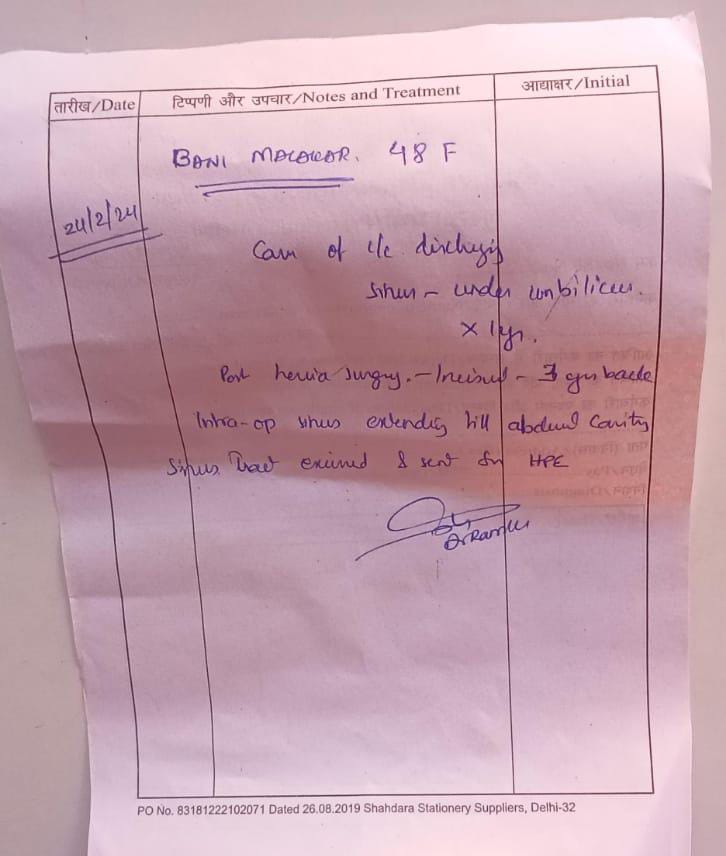 तारीख/Date
टिप्पणी और उपचार/Notes and Treatment
आद्याक्षर/Initial
BANI MALAKAR. 48 F
24/2/24
Case of c/c discharging
sinus - under umbilicus.
x 1yr.
Post hernia surgery. - Incisional - 3 yrs back
Intra-op sinus extending till abdominal cavity
Sinus Tract excised & sent for HPE
PO No. 83181222102071 Dated 26.08.2019 Shahdara Stationery Suppliers, Delhi-32